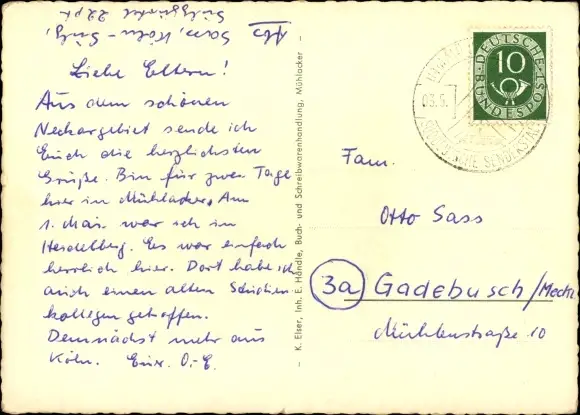 Abs
Sass, Köln-Sülz,
Sülzgürtel 22 pt.
Liebe Eltern!
Aus dem schönen
Neckargebiet sende ich
Euch die herzlichsten
Grüße. Bin für zwei Tage
hier in Mühlacker. Am
1. Mai war ich in
Heidelberg. Es war einfach
herrlich hier. Dort habe ich
auch einen alten Studien
kollegen getroffen.
Demnächst mehr aus
Köln. Euer O.-E.
- K. Elser, Inh. E. Händle, Buch- und Schreibwarenhandlung, Mühlacker -
DEUTSCHE
BUNDESPOST
10
03.5.
SÜDDEUTSCHE
Fam.
Otto Sass
3a Gadebusch/Meckl
Mühlenstraße 10